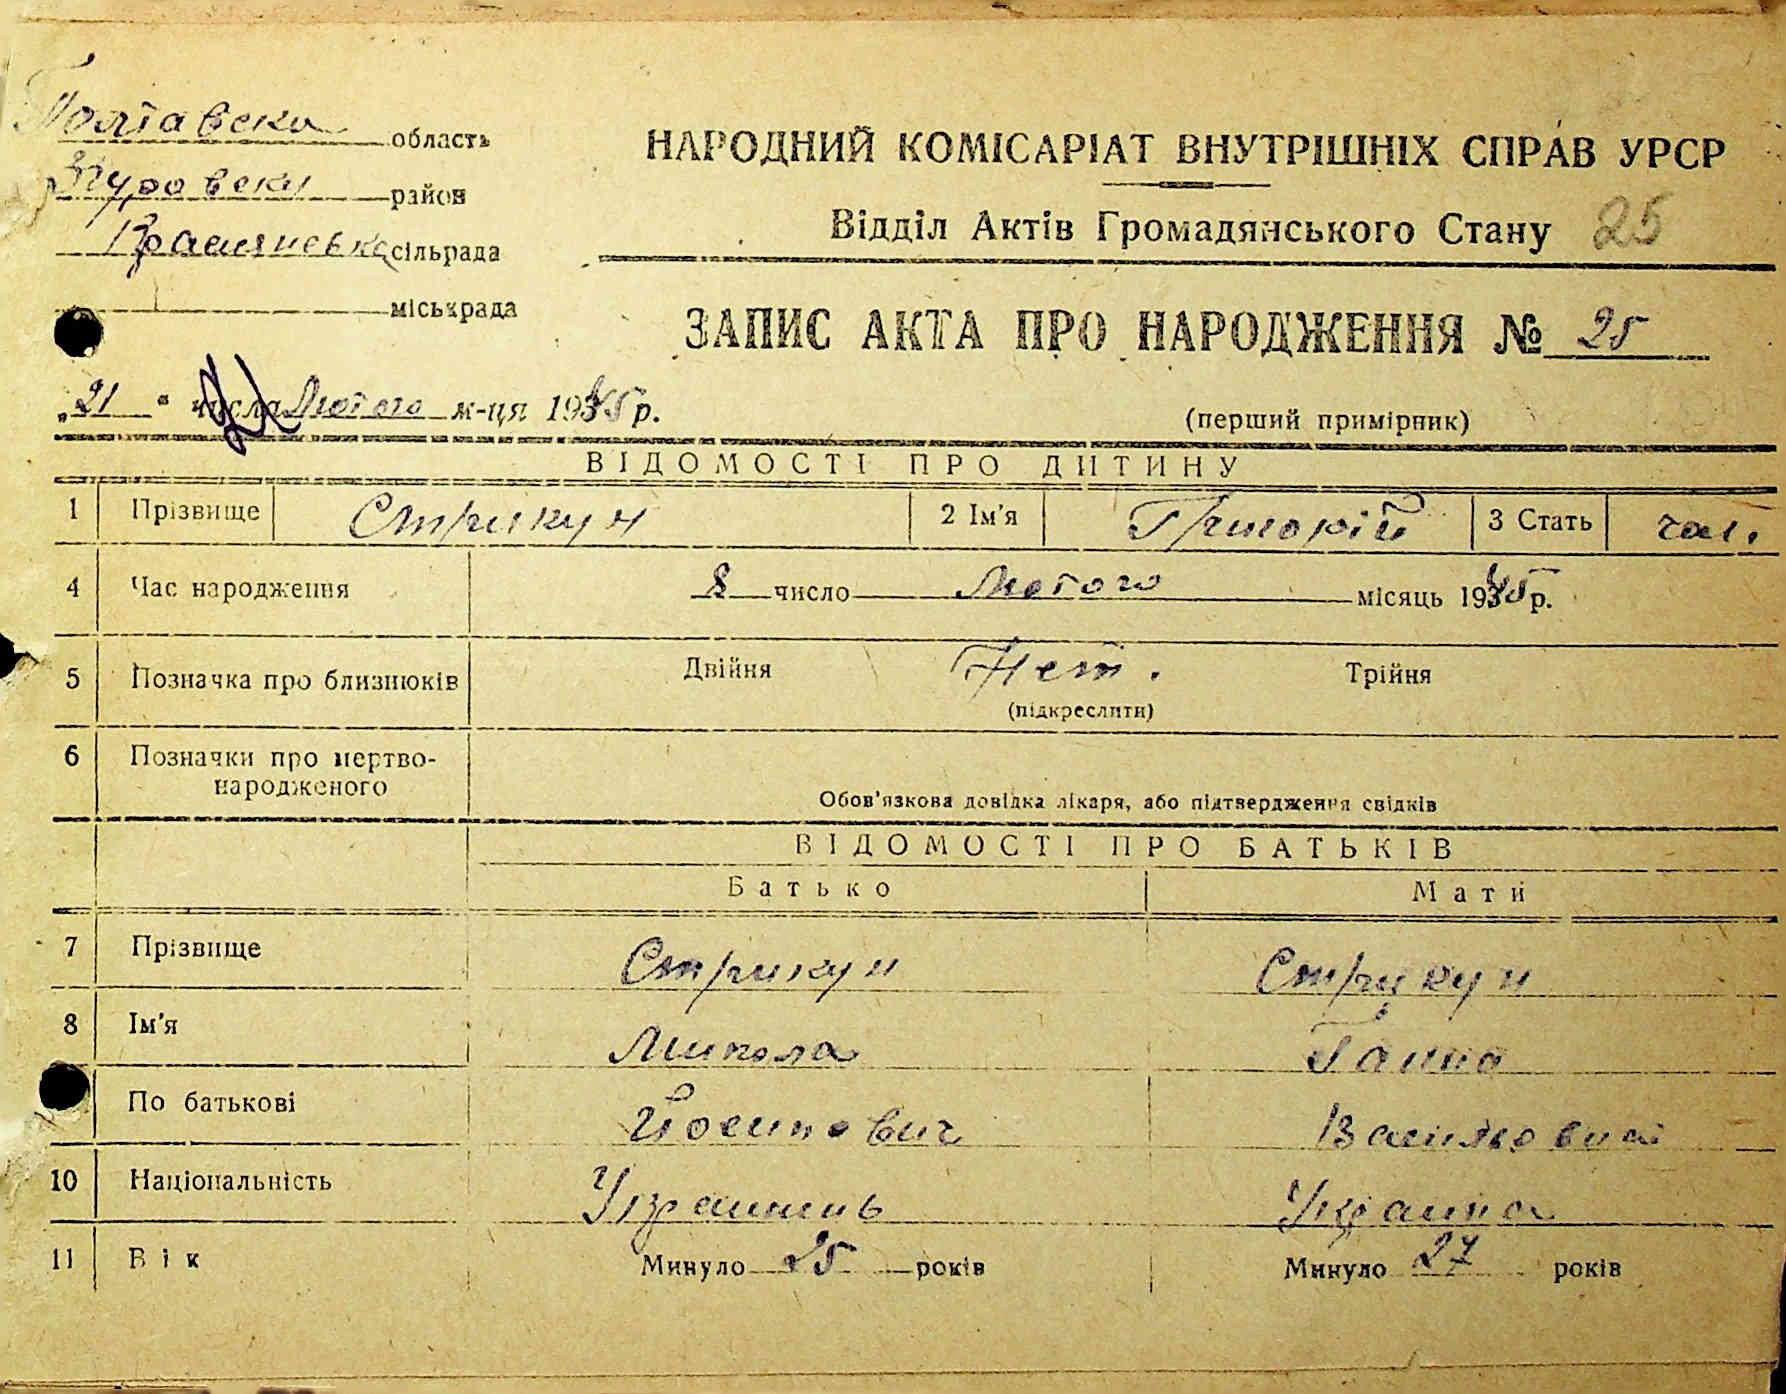 Полтавска область
район
сільрада
міськрада
НАРОДНИЙ КОМІСАРІАТ ВНУТРІШНІХ СПРАВ УРСР
Відділ Актів Громадянського Стану 25
ЗАПИС АКТА ПРО НАРОДЖЕННЯ № 25
„21“ числа Лютого м-ця 1945 р.
(перший примірник)
ВІДОМОСТІ ПРО ДИТИНУ
1 Прізвище Стрикун 2 Ім'я Григорій 3 Стать чол.
4 Час народження 8 число Лютого місяць 1945 р.
5 Позначка про близнюків Двійня Нет. Трійня
(підкреслити)
6 Позначки про мертво-
народженого
Обов'язкова довідка лікаря, або підтвердження свідків
ВІДОМОСТІ ПРО БАТЬКІВ
Батько Мати
7 Прізвище Стрикун Стрикун
8 Ім'я Микола Ганна
По батькові Йосипович
10 Національність Українець Українка
11 Вік Минуло 25 років Минуло 27 років